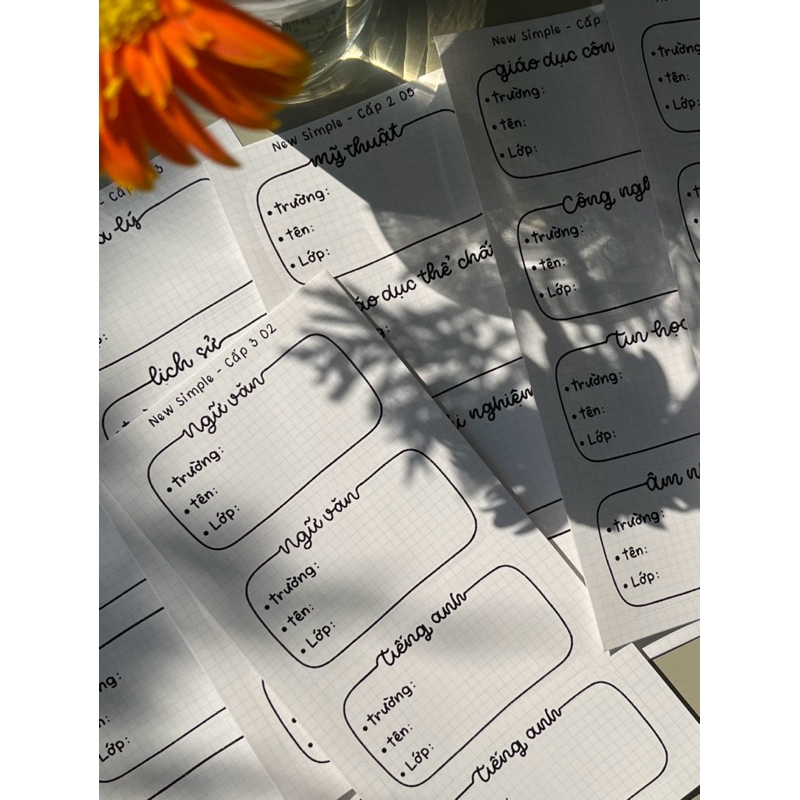 New Simple - Cấp 3 02
ngữ văn
• trường:
• tên:
• Lớp:
ngữ văn
• trường:
• tên:
• Lớp:
tiếng anh
• trường:
• tên:
• Lớp:
tiếng anh
New Simple - Cấp 2 05
mỹ thuật
• trường:
• tên:
• Lớp:
áo dục thể chấ
i nghiệm
New Simple - Cấp
giáo dục côn
• trường:
• tên:
• Lớp:
Công ngh
• trường:
• tên:
• Lớp:
tin học
• trường:
• tên:
• Lớp:
âm n
• trường:
• tên:
• Lớp:
• tên:
• Lớp:
- Cấp 3
a lý
lịch sử
ng:
n:
Lớp: